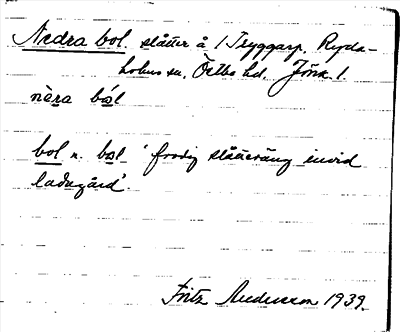 Nedra bol. slåtter å 1 Tryggarp, Ryda-
holms sn. Östbo hd. Jönk l.
nèra bol
bol n. bol 'frodig slåtteräng invid
ladugård'.
Fritz Andersson 1939.